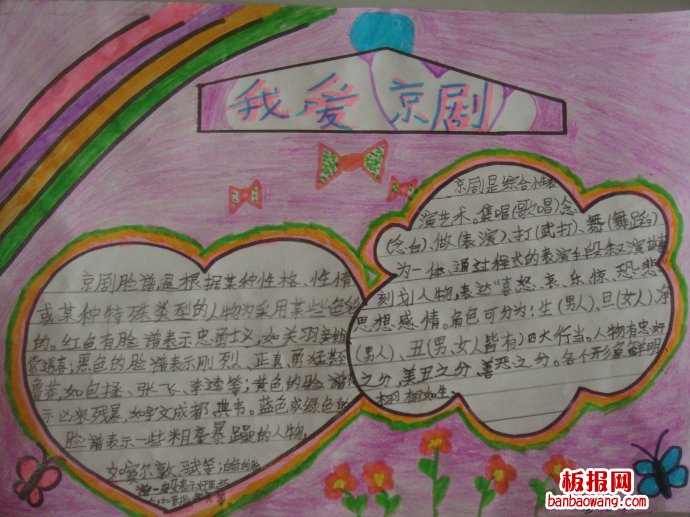 我爱京剧
京剧脸谱是根据某种性格、性情
或某种特殊类型的人物为采用某些色彩
的。红色有脸谱表示忠勇士义,如关羽
常遇春;黑色的脸谱表示刚烈、正真、勇猛甚
鲁莽,如包拯、张飞、李逵等;黄色的脸谱
示凶狠残暴 如宇文成都 典韦。蓝色或绿色的
脸谱表示一些粗豪暴躁的人物,
京剧是综合性
演艺术。集唱(歌唱)念
(念白)、做(表演)、打(武打)、舞(舞蹈)
为一体、通过程式的表演手段叙演故事
刻划人物,表达“喜、怒、哀、乐、惊、恐、悲”
思想感情。角色可分为:生(男人)、旦(女人)、净
(男人)、丑(男、女人皆有)四大行当。人物有忠奸
之分,美丑之分、善恶之分。各个形象鲜明、
栩栩如生。
板报网
banbaowang.com